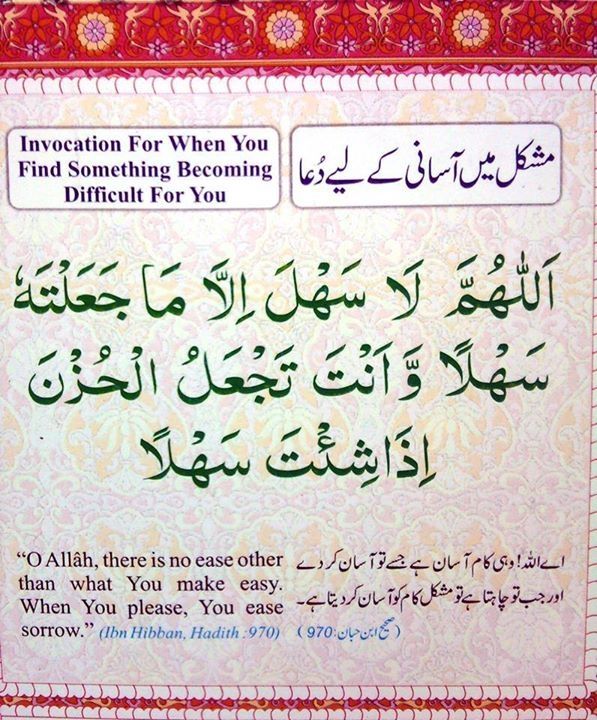 Invocation For When You
Find Something Becoming
Difficult For You
مشکل میں آسانی کے لیے دُعا
اَللّٰهُمَّ لَا سَهْلَ اِلَّا مَا جَعَلْتَهٗ
سَهْلًا وَّاَنْتَ تَجْعَلُ الْحُزْنَ
اِذَا شِئْتَ سَهْلًا
“O Allâh, there is no ease other
than what You make easy.
When You please, You ease
sorrow.” (Ibn Hibban, Hadith :970)
اے اللہ! وہی کام آسان ہے جسے تو آسان کر دے
اور جب تو چاہتا ہے تو مشکل کام کو آسان کر دیتا ہے۔
(صحیح ابن حبان: 970)